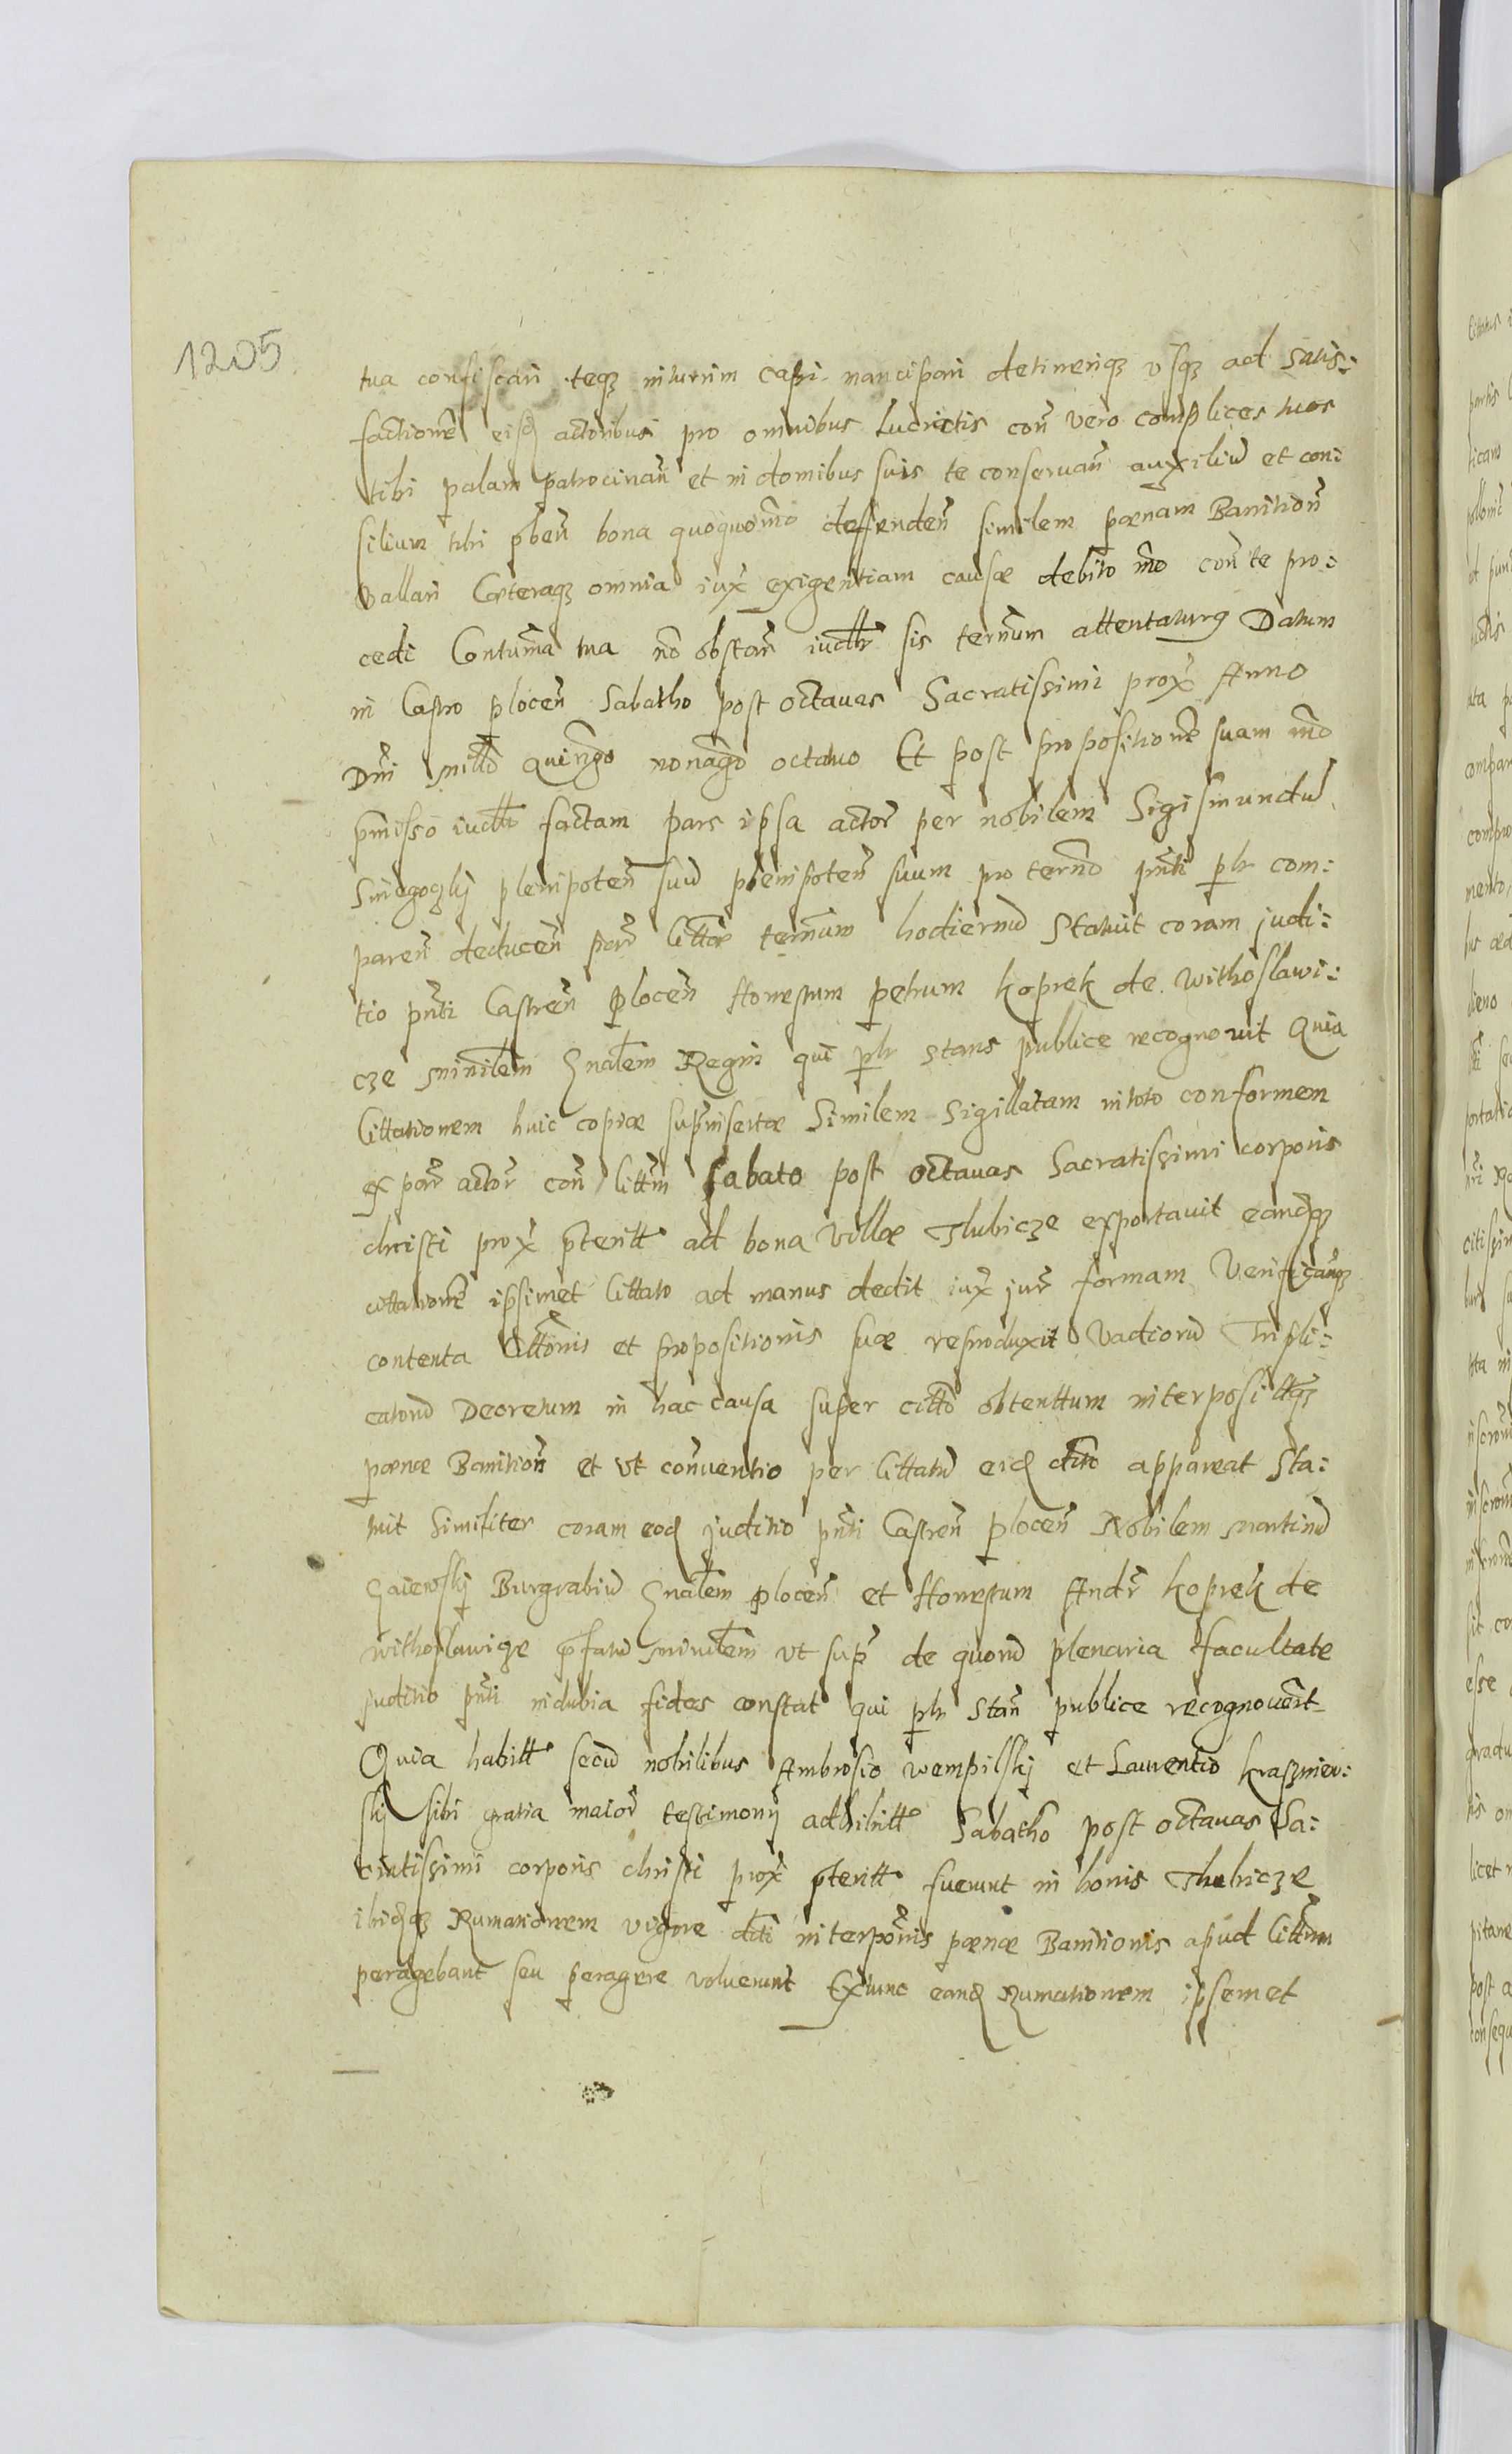 1205
tua confiscari teqz interim capi nancipari detineriqz vsqz ad satis:
factionē eisd actoribus pro omnibus Lucrictis con̄ vero complices tuos
tibi palam patrocinan̄ et in domibus suis te conseruan̄ auxiliū et con:
silium tibi p̄ben̄ bona quoquomō deffenden̄ similem pœnam Banition̄
vallari Cæteraqz omnia iux̄ exigentiam causæ debito m̄o con̄ te pro:
cedi Contuma tua nō obstan̄ iudlr sis termm̄ attentaturg Datum
in Castro plocen̄ Sabatho post octauas Sacratissimi prox̄ Anno
Dn̄i millō Quing̃o nonag̃o octauo Et post propositionē suam mō
p̄misso iudlr factam pars ipsa actor̄ per nobilem Sigismundū
plenipoten̄ suū plenipoten̄ suum pro termo pn̄ti plr com:
paren̄ deducen̄ par̄ littæ termm̄ hodiernū Statuit coram judi:
tio pn̄ti Castren̄ plocen̄ Honestum petrum koprek de withoslawi:
cze minilem̄ Gnalem Regni qui plr stans publice recognouit Quia
Cittationem huic copiæ supinsertæ Similem Sigillatam in toto conformem
ex par̄ actor̄ con̄ littm̄ Sabato post octauas Sacratissimi corporis
christi prox̄ p̄teritt ad bona villæ Thubicze exportauit eandqz
cittationē ipsimet Cittato ad manus dedit iux̄ jur̄ formam Verificanqz
contenta Cittōnis et propositionis suæ reproduxit Vadiorū Tripli:
catorū Decretum in hac causa super cittō obtenttum interposittqz
pœnæ Banition̄ et vt conuentio per Cittatū eid dicto appareat Sta:
tuit Similiter coram eod juditio pn̄ti Castren̄ plocen̄ Nobilem Martinū
Gaiewskj Burgrabiū Gnalem plocen̄ et Honestum Andr̄ koprek de
withoslawicze p̄fatū minilem̄ vt sup̄ de quorū plenaria facultate
juditio pn̄ti indubia fides constat qui plr stan̄ publice recognouert
Quia habitt secū nobilibus Ambrosio wempilskj et Laurentio kraszniew:
skj sibi gratia maior̄ testimonij adhibitt Sabatho post octauas Sa:
cratissimi corporis christi prox̄ p̄teritt fuerunt in bonis Thubicze
ibidqz Rumationem vigore dcti interpōnis pœnæ Banitionis apud Cittm̄
peragebant seu peragere voluerunt Extunc eand Rumationem ipsemet